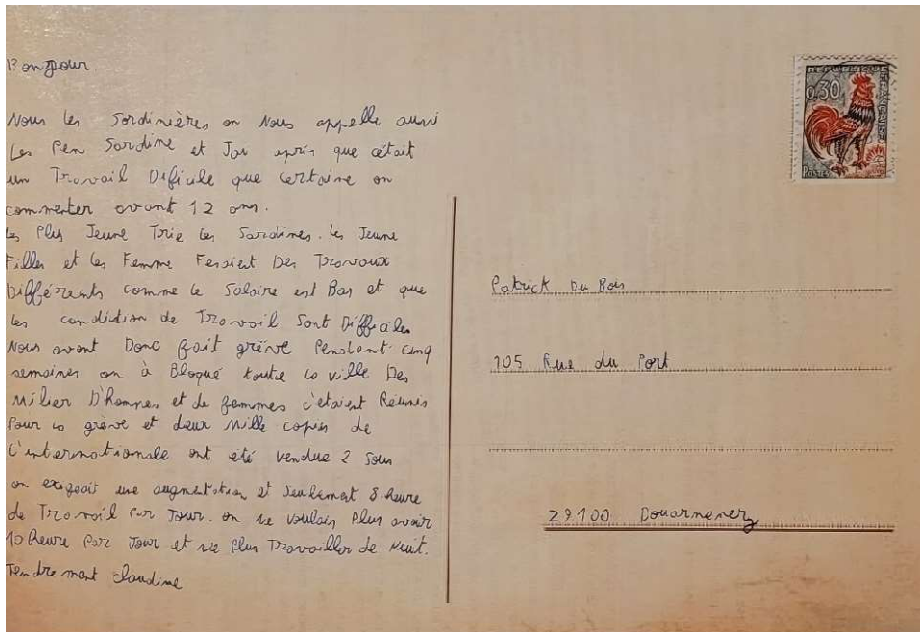 Nous les Sardinières on nous appelle aussi
Les Pen Sardine et Jai apris que c'était
un Travail Dificile que certaine on
commenter avant 12 ans.
Les Plus Jeune Trie les Sardines. les Jeune
Filles et les Femme Fesaient Des Travaux
Différents comme le Salaire est Bas et que
les condidtion de Travail Sont Difficiles
Nous avont Donc fait grève Pendant cinq
semaines on à Bloqué toute la ville Des
milier D'hommes et de femmes c'etaient Réunis
Pour la grève et deux mille copies de
L'internationale ont eté vendue 2 Sous
on exigeait une augmentation et Seulement 8 heure
de Travail Par Jour. on ne voulais Plus avoir
10 heure Par Jour et ne Plus Travailler de Nuit.
Tendrement Claudine
0,30
Postes
Patrick Du Bois
105 Rue du Port
29100 Douarnenez